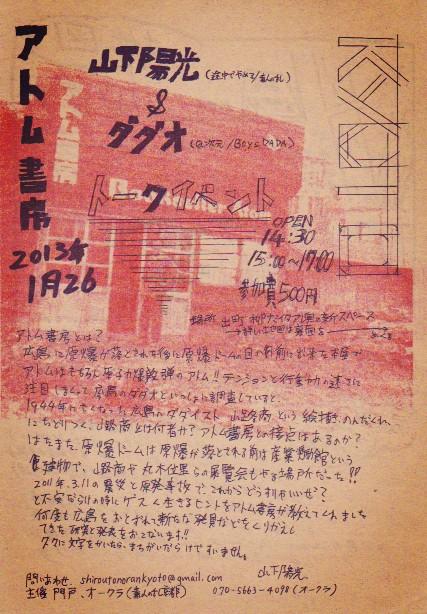 アトム書房
2013年
1月26
山下陽光(途中でやめる/素人の乱)
&
ダダオ
トークイベント
Kyoto
アトム書房
OPEN
14:30
15:00~17:00
参加費500円
場所 出町
アトム書房とは?
広島に原爆が落とされた後に原爆ドームの目の前に出来た本屋で
アトムはもちろん原子力爆弾のアトム!!テンションと行動力の速さに
注目しまくって広島のダダオといっしょに調査していると、
1944年に亡くなった広島のダダイスト 山路商という絵描き、のんだくれ、
にたどりつく。山路商とは何者か?アトム書房との接点はあるか?
はたまた、原爆ドームは原爆が落とされる前は産業奨励館という
建物で、山路商や丸木位里らの展覧会もやる場所だった!!
2011年.3.11の震災と原発事故で、これからどうすればいいぜ?
と不安なら
何度も広島をおとずれて新たな発見などをくりかえし
てきた研究と発表をおこないます!!
タテに文字をかいたら、まちがいだらけですいません。
山下陽光
問いあわせ. shiroutonorankyoto@gmail.com
主催 門戸、オークラ(素人の乱京都) 070-5663-4098(オークラ)